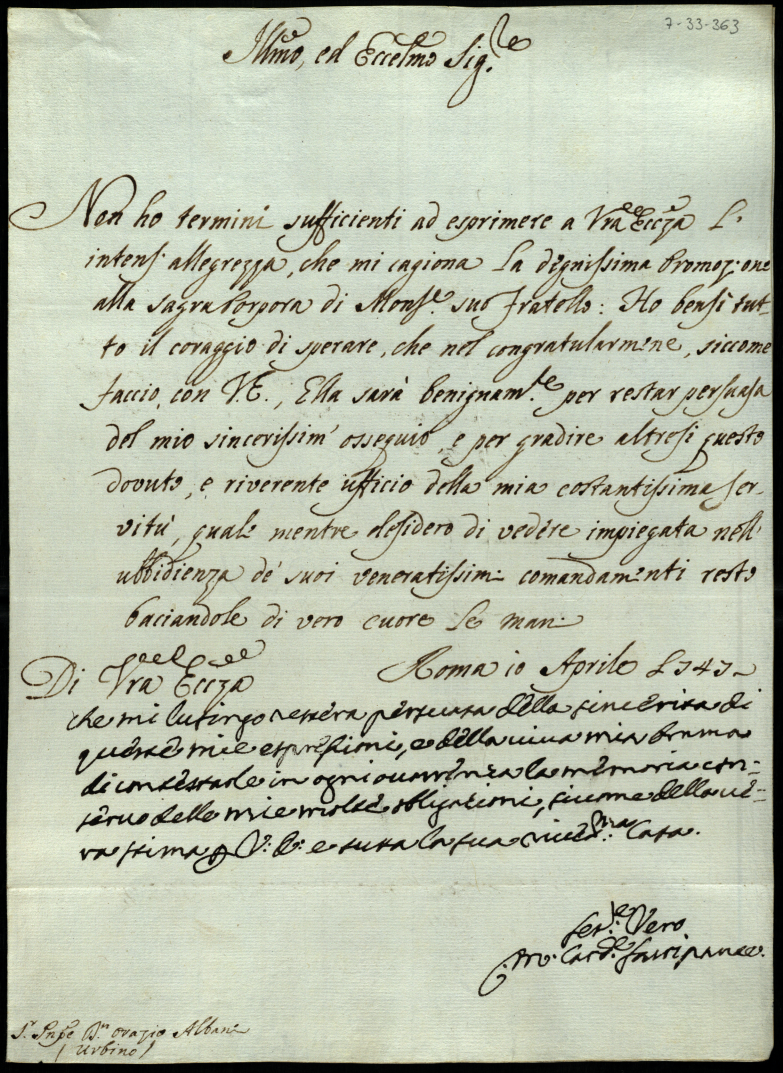 7-33-363
Illmo, ed Eccelmo Sig.re
Non ho termini sufficienti ad esprimere a Vra Eccza L'
intens' allegrezza, che mi cagiona La dignissima Promoz:one
alla sagra Porpora di Monse. suo fratello: Ho bensi tut-
to il coraggio di sperare, che nel congratularmene, siccome
faccio, con V.E., Ella sarà benignam.te per restar persuasa
del mio sincerissim' ossequio, e per gradire altresi questo
dovuto, e riverente ufficio della mia costantissima ser-
vitù, quale mentre desidero di vedere impiegata nell'
ubbidienza de' suoi veneratissimi comandamenti resto
baciandole di vero cuore le mani
Di Vra Eccza Roma 10 Aprile 1747
che mi lusingo resterà persuasa della sincerità di
queste mie espressioni, e della viva mia brama
di contestarle in ogni ouvenza la memoria con-
servo delle mie molte obligazioni, siccome della ve-
ra stima V: E: e tutta la sua Casa.
Ser.re Vero
Card.le
S.r Pnpe Dn Orazio Albani
(Urbino)